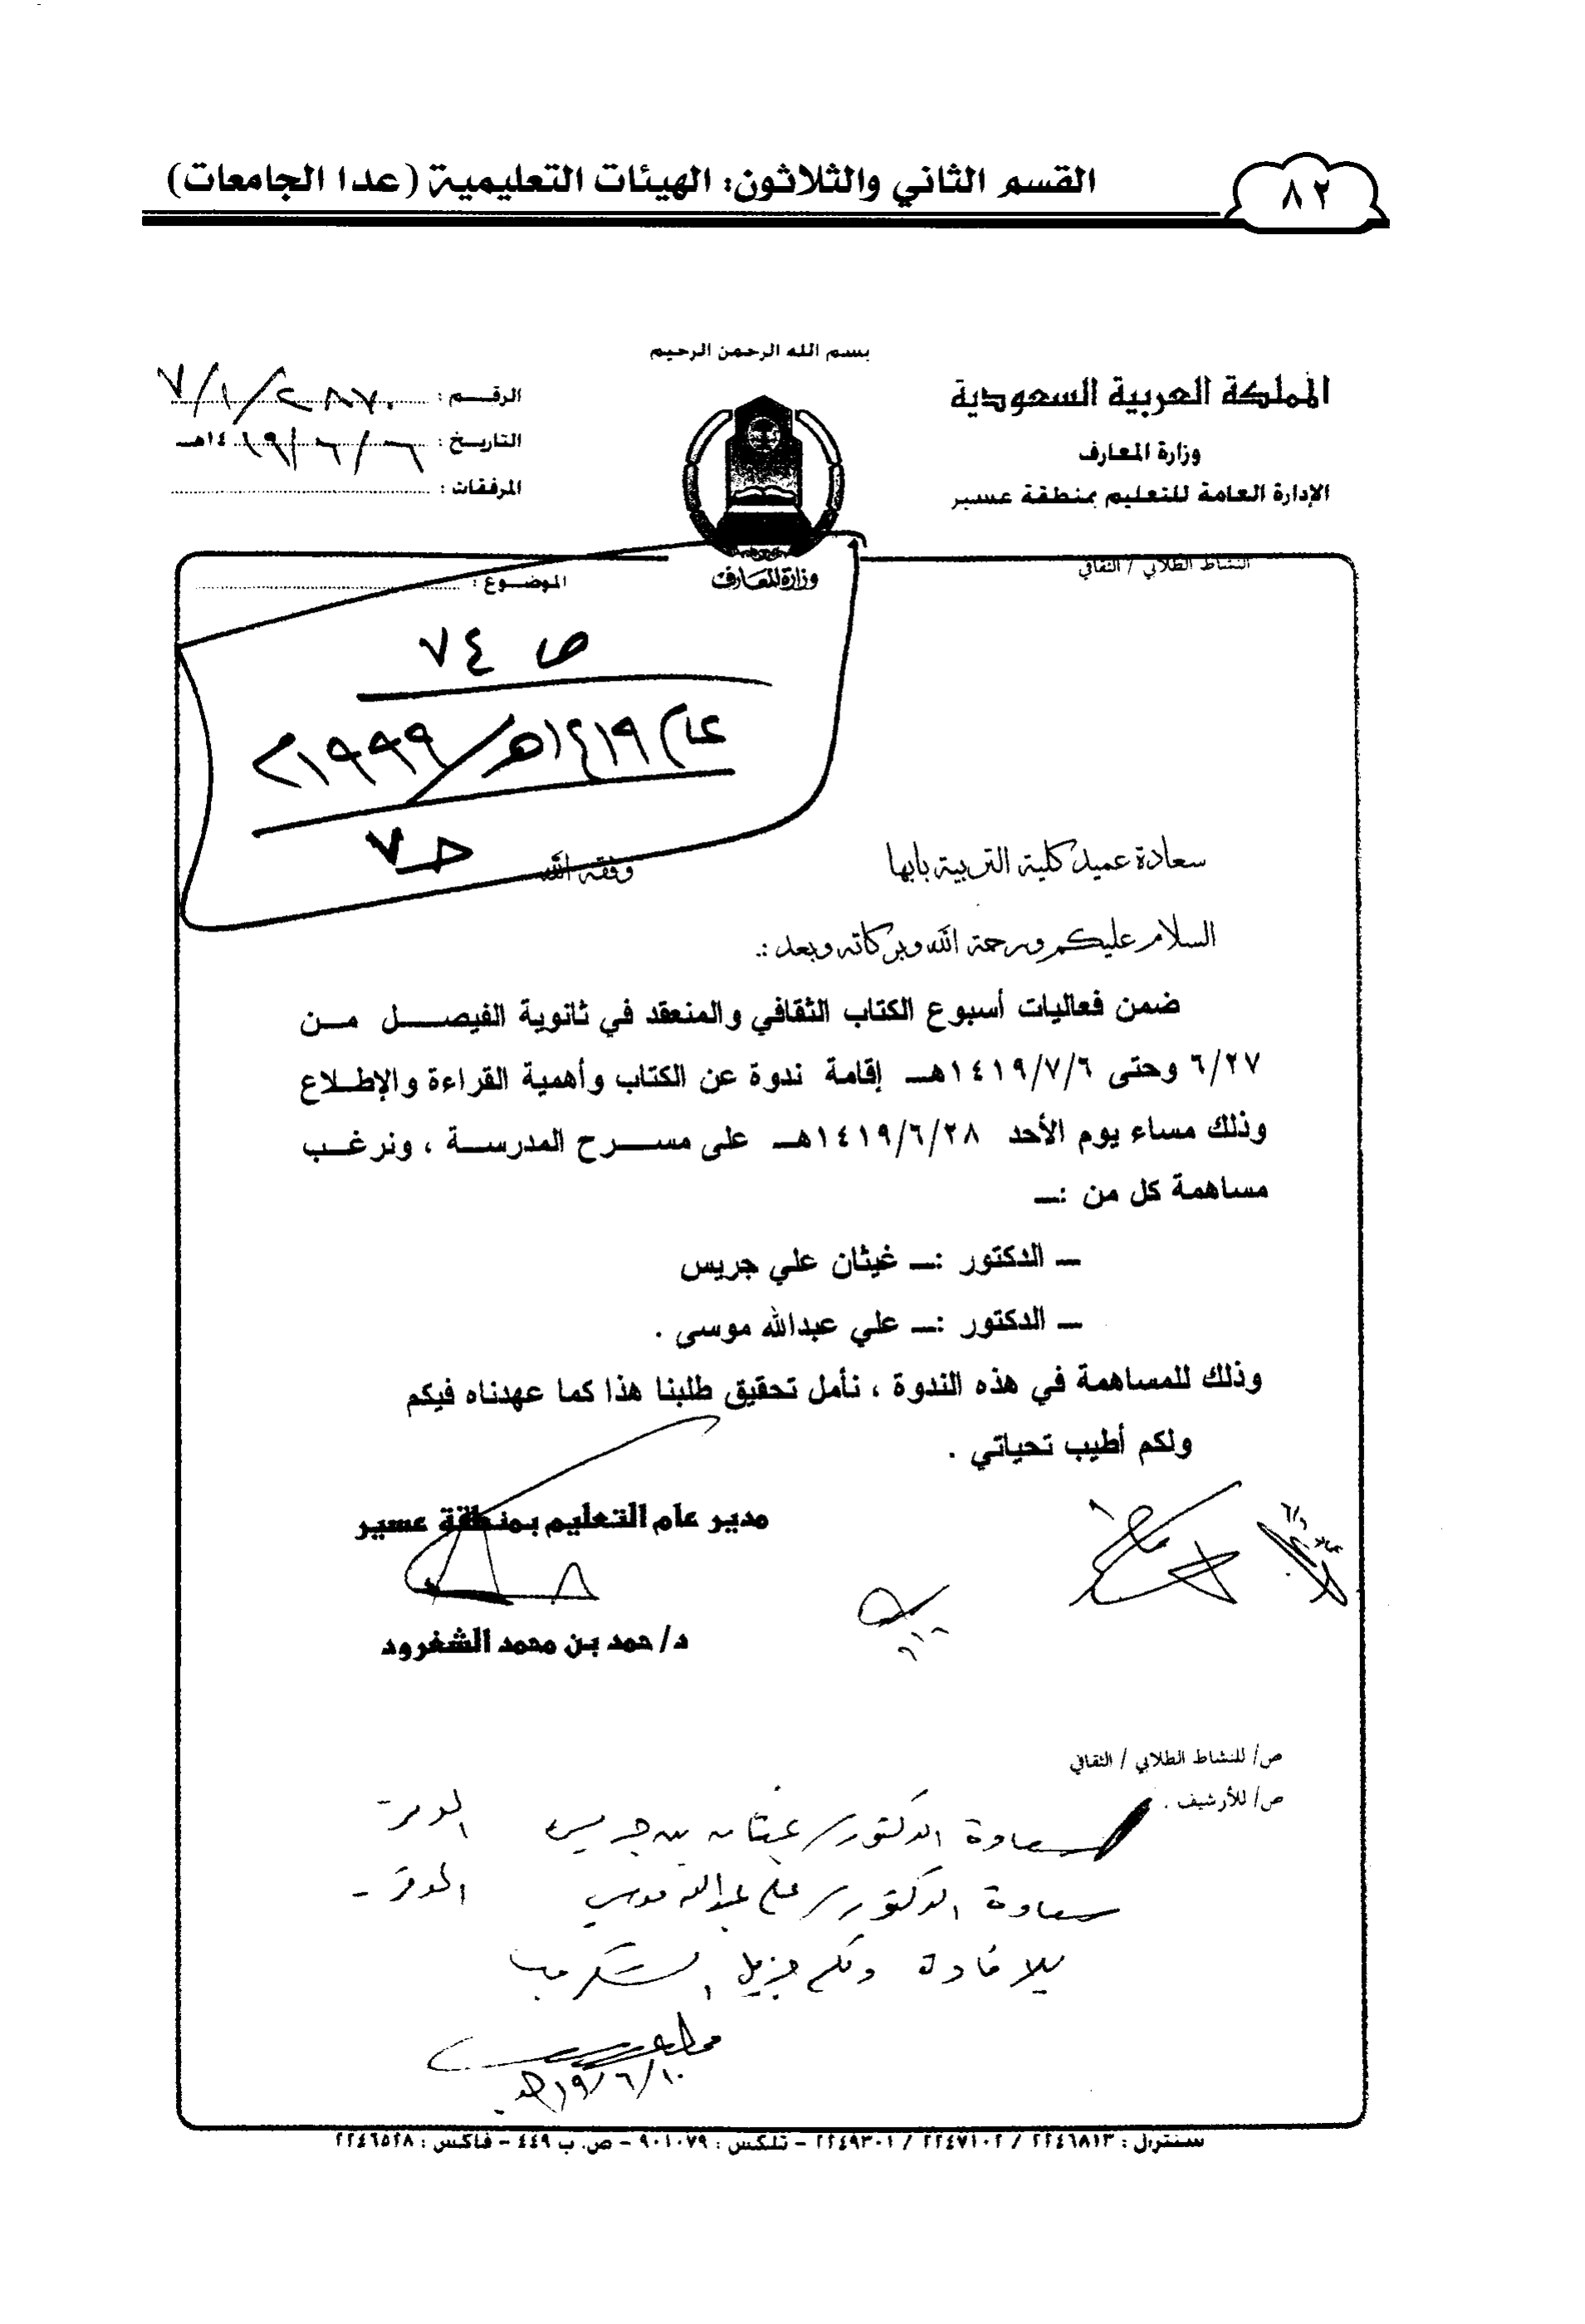 ٨٢
القسم الثاني والثلاثون: الهيئات التعليمية (عدا الجامعات)
بسم الله الرحمن الرحيم
المملكة العربية السعودية
وزارة المعارف
الإدارة العامة للتعليم بمنطقة عسير
النشاط الطلابي / الثقافي
الرقـــم : ٧/١/٢٨٧٠
التاريـخ : ٦/٦/١٤١٩هـ
المرفقات :
وزارة المعارف
الموضـوع :
ص ٧٤
عام ١٤١٩هـ/١٩٩٩م
حـ٧
سعادة عميد كلية التربية بابها وفقه الله
السلام عليكم ورحمة الله وبركاته وبعد :.
ضمن فعاليات أسبوع الكتاب الثقافي والمنعقد في ثانوية الفيصـــل مــن
٦/٢٧ وحتى ١٤١٩/٧/٦هــ إقامة ندوة عن الكتاب وأهمية القراءة والإطــلاع
وذلك مساء يوم الأحد ١٤١٩/٦/٢٨هــ على مســرح المدرســة ، ونرغــب
مساهمة كل من :ــ
ــ الدكتور :ــ غيثان علي جريس
ــ الدكتور :ــ علي عبدالله موسى .
وذلك للمساهمة في هذه الندوة ، نأمل تحقيق طلبنا هذا كما عهدناه فيكم
ولكم أطيب تحياتي .
مدير عام التعليم بمنطقة عسير
د/ حمد بن محمد الشغرود
ص/ للنشاط الطلابي / الثقافي
ص/ للأرشيف .
سعادة الدكتور/ غيثان بن جريس الموقر -
سعادة الدكتور/ علي عبدالله موسى الموقر -
للافادة ولكم جزيل الشكر
١٩/٦/١٠هـ
سنترال : ٢٢٤٦٨١٣ / ٢٢٤٧١٠٢ / ٢٢٤٩٣٠١ – تلكس : ٩٠١٠٧٩ – ص. ب ٤٤٩ – فاكس : ٢٢٤٦٥٢٨